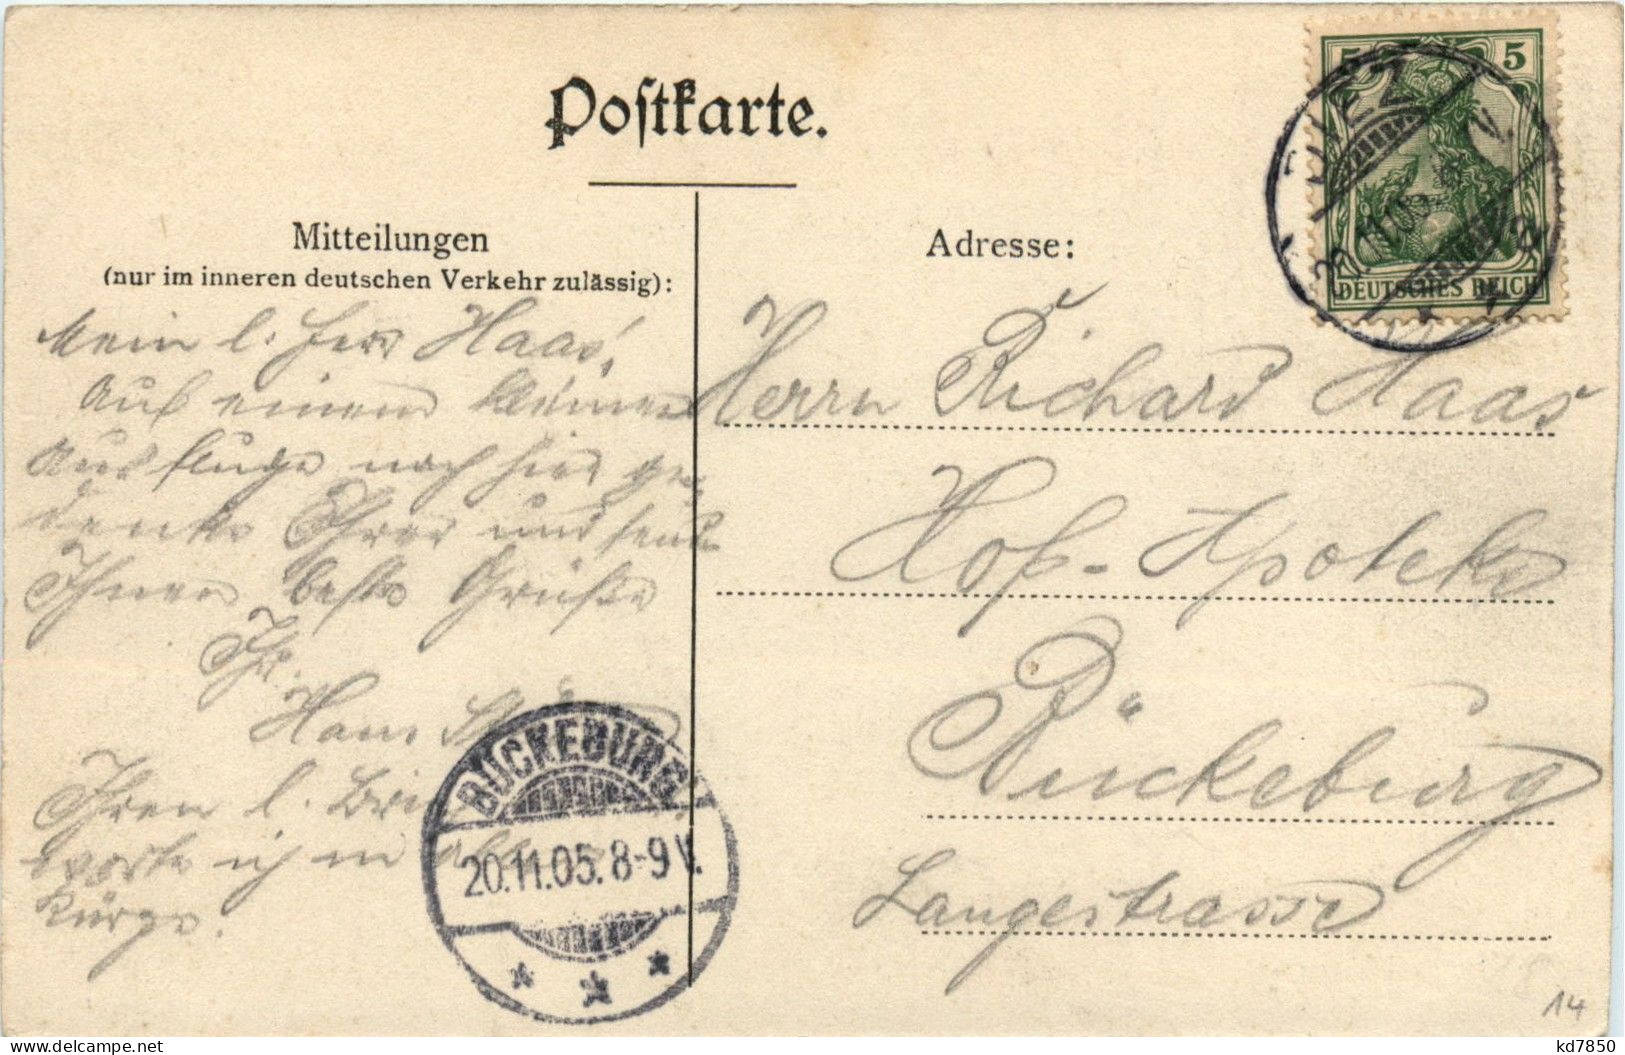 Postkarte.
Mitteilungen
(nur im inneren deutschen Verkehr zulässig):
Adresse:
5 5
DEUTSCHES REICH
Mein l. Herr Haas!
Auf einem kleinen
Ausfluge nach hier ge-
denke Ihrer und sende
Ihnen beste Grüße
Ihr
Hans
Ihren l.
ich in
Kürze.
Herrn Richard Haas
Hof-Apoteke
Bückeburg
Langestrasse
BÜCKEBURG
20.11.05. 8-9 V.
14
kd7850